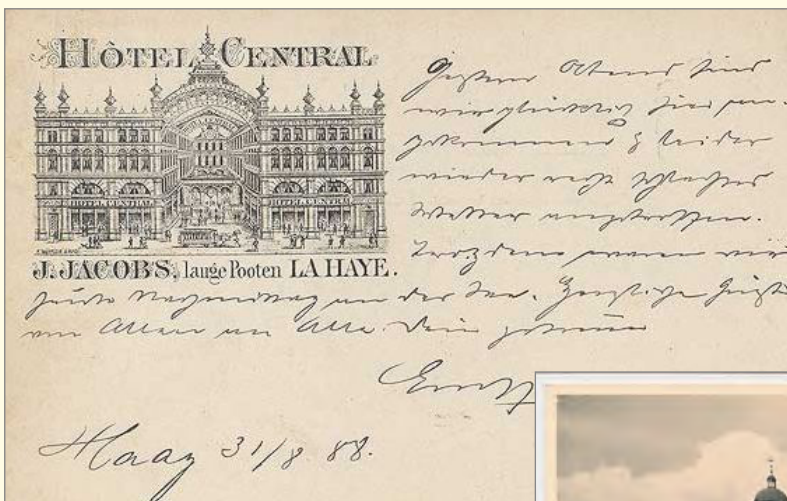 HÔTEL CENTRAL
HOTEL CENTRAL HOTEL CENTRAL
J. JACOBS, lange Pooten LA HAYE.
Gestern Abend sind
wir glücklich hier an-
gekommen & leider
wieder recht schlechtes
Wetter angetroffen.
Trotzdem waren wir
heute Nachmittag an der See. Herzliche Grüße
von Allen an Alle. Dein getreuer
Ernst
Haag 31/8. 88.